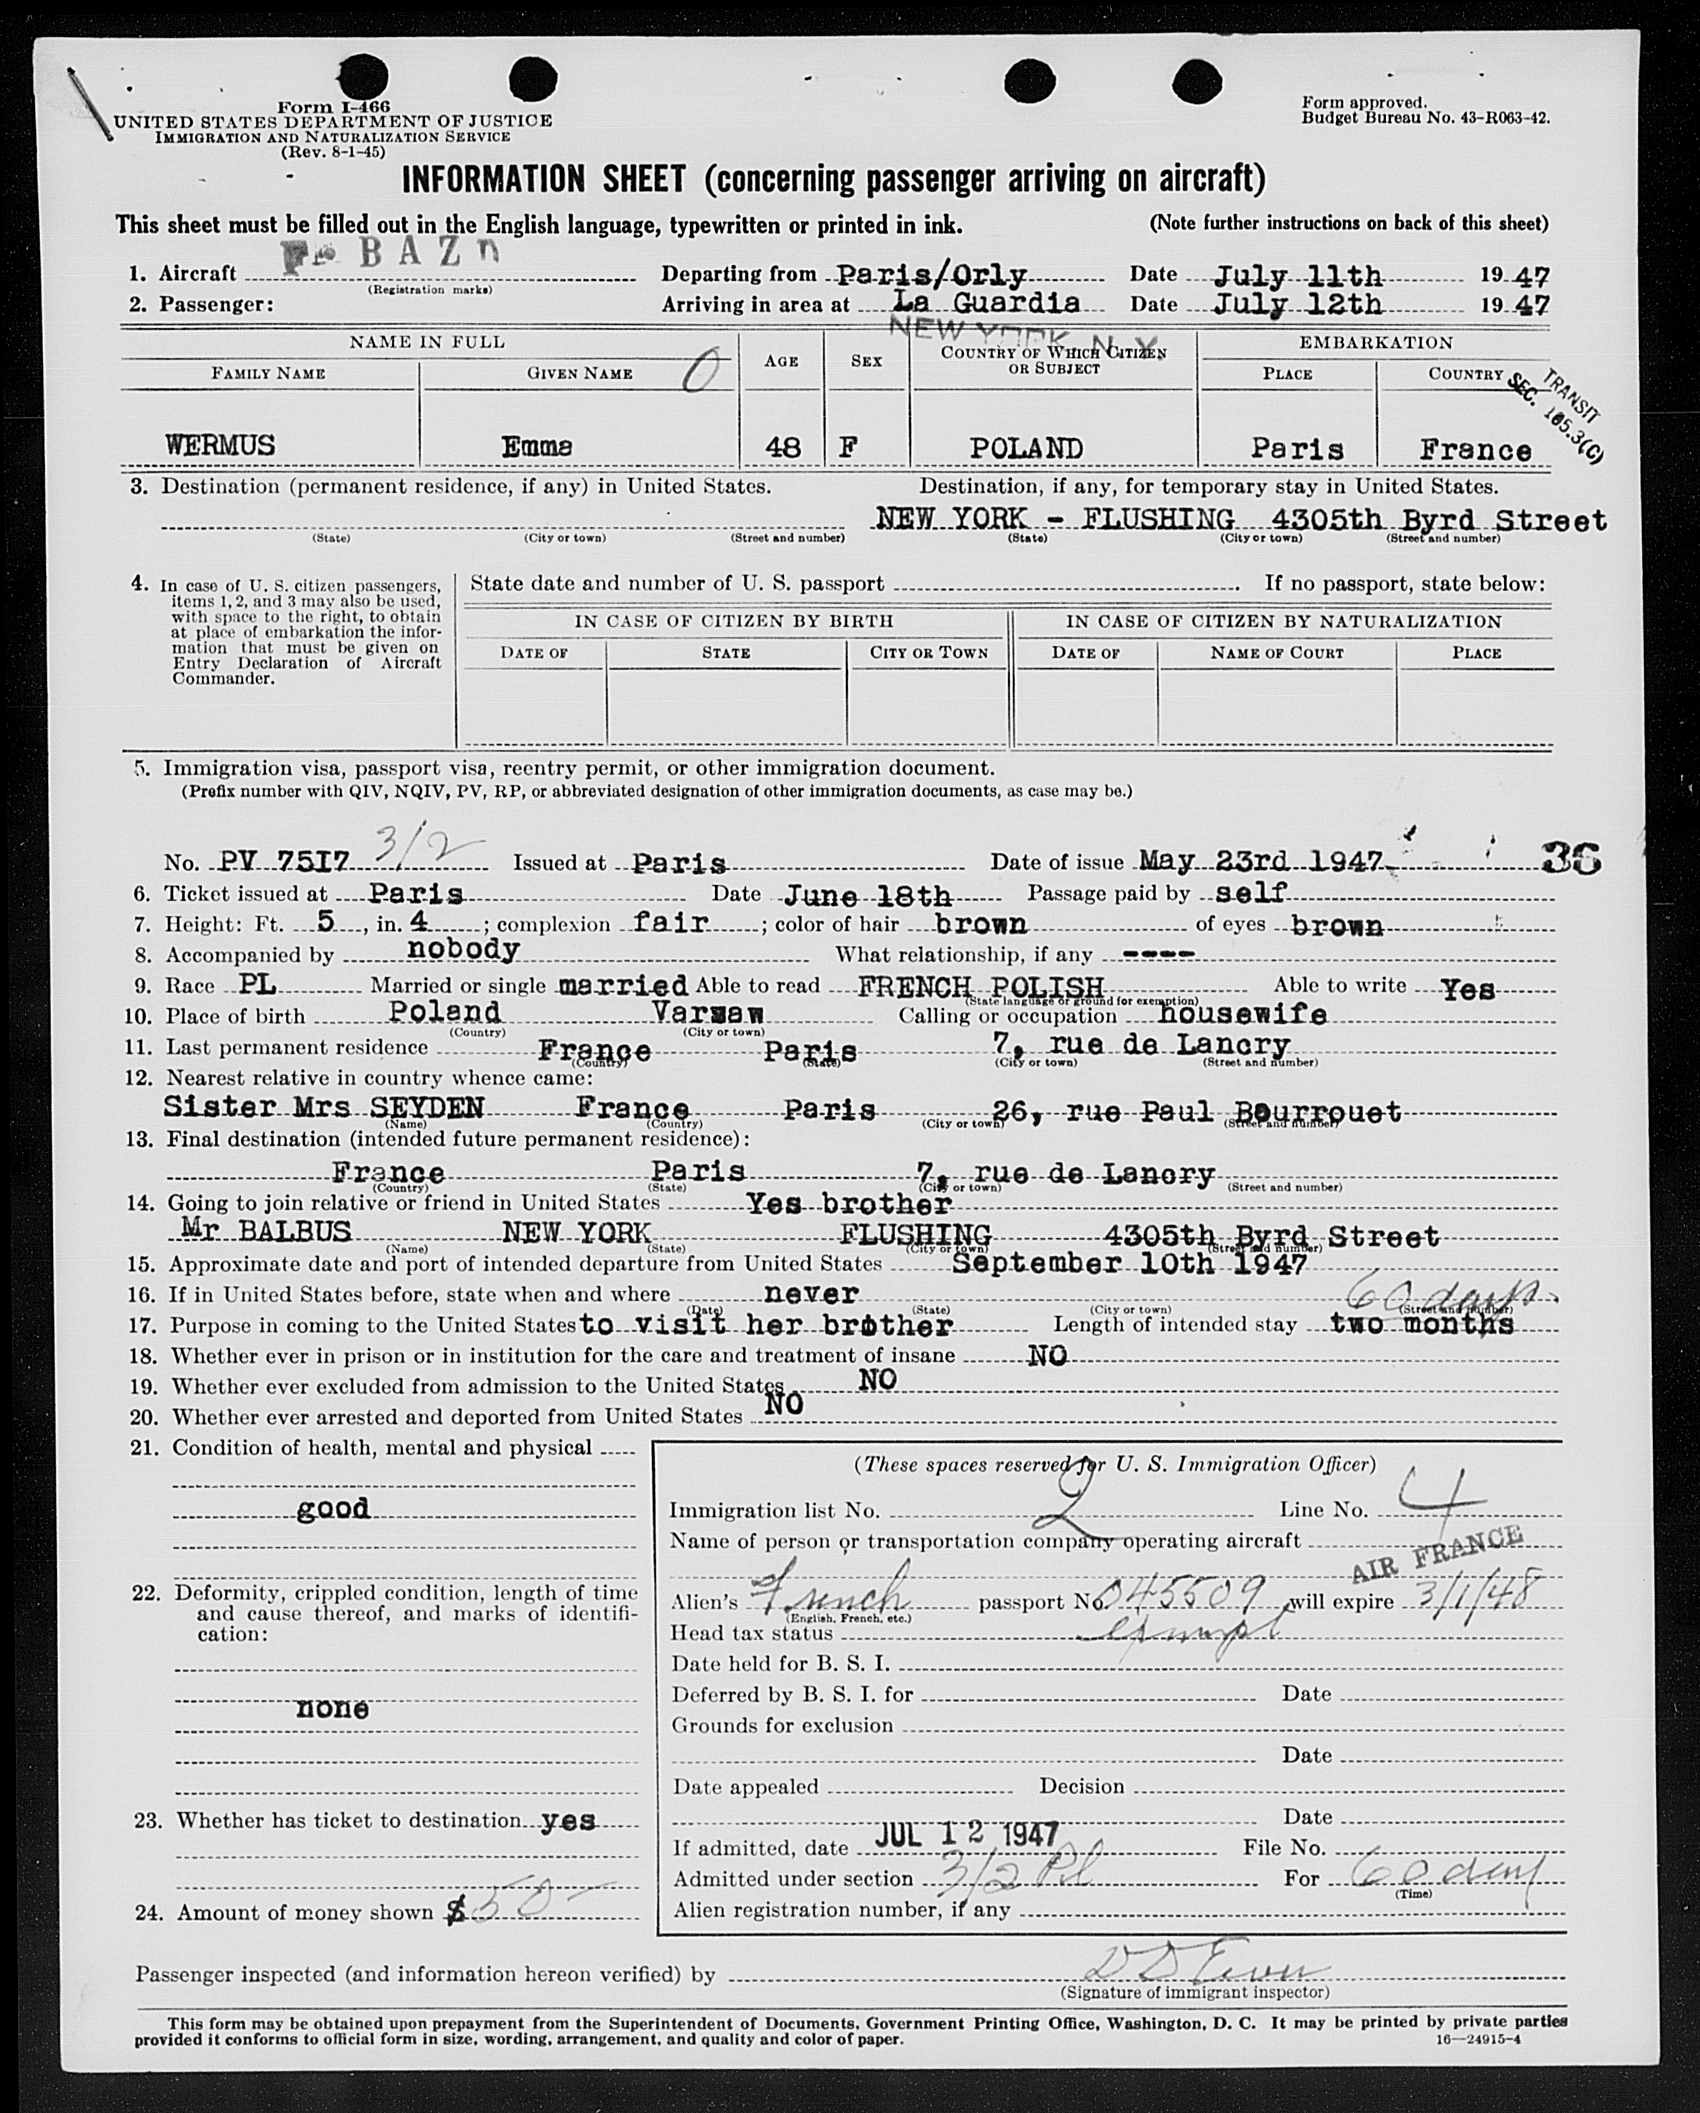 Form I-466
UNITED STATES DEPARTMENT OF JUSTICE
IMMIGRATION AND NATURALIZATION SERVICE
(Rev. 8-1-45)
Form approved.
Budget Bureau No. 43-R063-42.
INFORMATION SHEET (concerning passenger arriving on aircraft)
This sheet must be filled out in the English language, typewritten or printed in ink. (Note further instructions on back of this sheet)
1. Aircraft F BAZN Departing from Paris/Orly Date July 11th 19 47
(Registration marks)
2. Passenger: Arriving in area at La Guardia Date July 12th 19 47
NEW YORK N. Y.
NAME IN FULL AGE SEX COUNTRY OF WHICH CITIZEN OR SUBJECT EMBARKATION
FAMILY NAME GIVEN NAME 0 PLACE COUNTRY
TRANSIT
SEC. 165.3(C)
WERMUS Emma 48 F POLAND Paris France
3. Destination (permanent residence, if any) in United States. Destination, if any, for temporary stay in United States.
NEW YORK - FLUSHING 4305th Byrd Street
(State) (City or town) (Street and number) (State) (City or town) (Street and number)
4. In case of U. S. citizen passengers,
items 1, 2, and 3 may also be used,
with space to the right, to obtain
at place of embarkation the infor-
mation that must be given on
Entry Declaration of Aircraft
Commander.
State date and number of U. S. passport . If no passport, state below:
IN CASE OF CITIZEN BY BIRTH IN CASE OF CITIZEN BY NATURALIZATION
DATE OF STATE CITY OR TOWN DATE OF NAME OF COURT PLACE
5. Immigration visa, passport visa, reentry permit, or other immigration document.
(Prefix number with QIV, NQIV, PV, RP, or abbreviated designation of other immigration documents, as case may be.)
No. PV 75I7 3/2 Issued at Paris Date of issue May 23rd 1947 36
6. Ticket issued at Paris Date June 18th Passage paid by self
7. Height: Ft. 5, in. 4; complexion fair; color of hair brown of eyes brown
8. Accompanied by nobody What relationship, if any ----
9. Race PL Married or single married Able to read FRENCH POLISH Able to write Yes
(State language or ground for exemption)
10. Place of birth Poland Varsaw Calling or occupation housewife
(Country) (City or town)
11. Last permanent residence France Paris 7, rue de Lancry
(Country) (State) (City or town) (Street and number)
12. Nearest relative in country whence came:
Sister Mrs SEYDEN France Paris 26, rue Paul Bourrouet
(Name) (Country) (City or town) (Street and number)
13. Final destination (intended future permanent residence):
France Paris 7, rue de Lancry
(Country) (State) (City or town) (Street and number)
14. Going to join relative or friend in United States Yes brother
Mr BALBUS NEW YORK FLUSHING 4305th Byrd Street
(Name) (State) (City or town) (Street and number)
15. Approximate date and port of intended departure from United States September 10th 1947
16. If in United States before, state when and where never 60 days
(Date) (State) (City or town) (Street and number)
17. Purpose in coming to the United States to visit her brother Length of intended stay two months
18. Whether ever in prison or in institution for the care and treatment of insane NO
19. Whether ever excluded from admission to the United States NO
20. Whether ever arrested and deported from United States NO
21. Condition of health, mental and physical
good
22. Deformity, crippled condition, length of time
and cause thereof, and marks of identifi-
cation:
none
23. Whether has ticket to destination yes
24. Amount of money shown $ 50-
(These spaces reserved for U. S. Immigration Officer)
Immigration list No. 2 Line No. 4
Name of person or transportation company operating aircraft
AIR FRANCE
Alien's French passport No. 045509 will expire 3/1/48
(English, French, etc.)
Head tax status exempt
Date held for B. S. I.
Deferred by B. S. I. for Date
Grounds for exclusion
Date
Date appealed Decision
Date
If admitted, date JUL 12 1947 File No.
Admitted under section 3/2 Pl For 60 day
(Time)
Alien registration number, if any
Passenger inspected (and information hereon verified) by
(Signature of immigrant inspector)
This form may be obtained upon prepayment from the Superintendent of Documents, Government Printing Office, Washington, D. C. It may be printed by private parties
provided it conforms to official form in size, wording, arrangement, and quality and color of paper. 16—24915-4